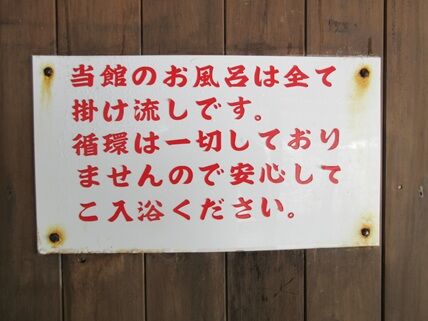 当館のお風呂は全て
掛け流しです。
循環は一切しており
ませんので安心して
ご入浴ください。